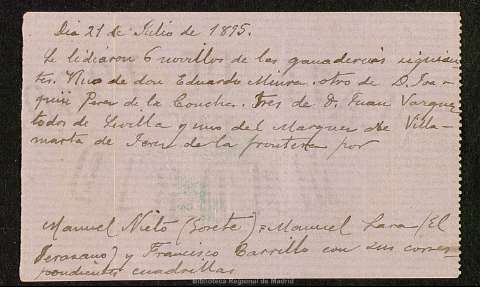 Dia 21 de Julio de 1895.
Se lidiaron 6 novillos de las ganaderias siguien
tes. Uno de don Eduardo Miura. otro de D. Joa-
quin Perez de la Concha. tres de D. Juan Vazquez
todos de Sevilla y uno del Marques de Villa-
marta de Jerez de la frontera por
Manuel Nieto (Gorete) Manuel Lara (El
Jerezano) y Francisco Carrillo con sus corres-
pondientes cuadrillas
Biblioteca Regional de Madrid